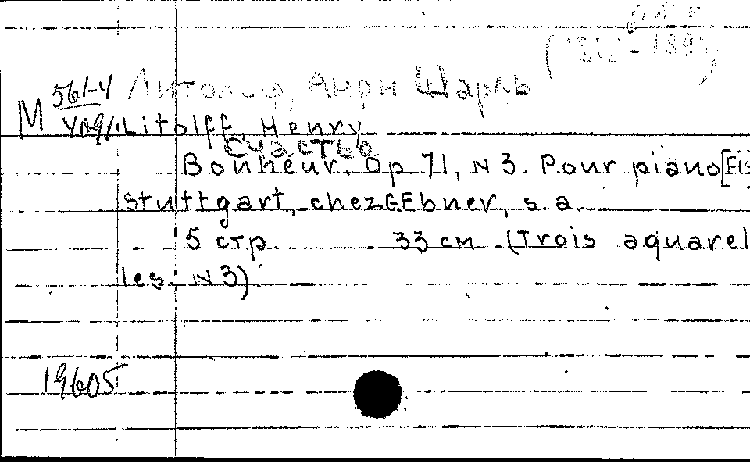 Литольф, Анри Шарль
М 561-4
Litolff, Henry
счастье
Bonheur. Op 71, N 3. Pour piano [Fis
Stuttgart, chez G. Ebner, s. a.
5 стр. 33 см. (Trois aquarel
les. N 3)
19605